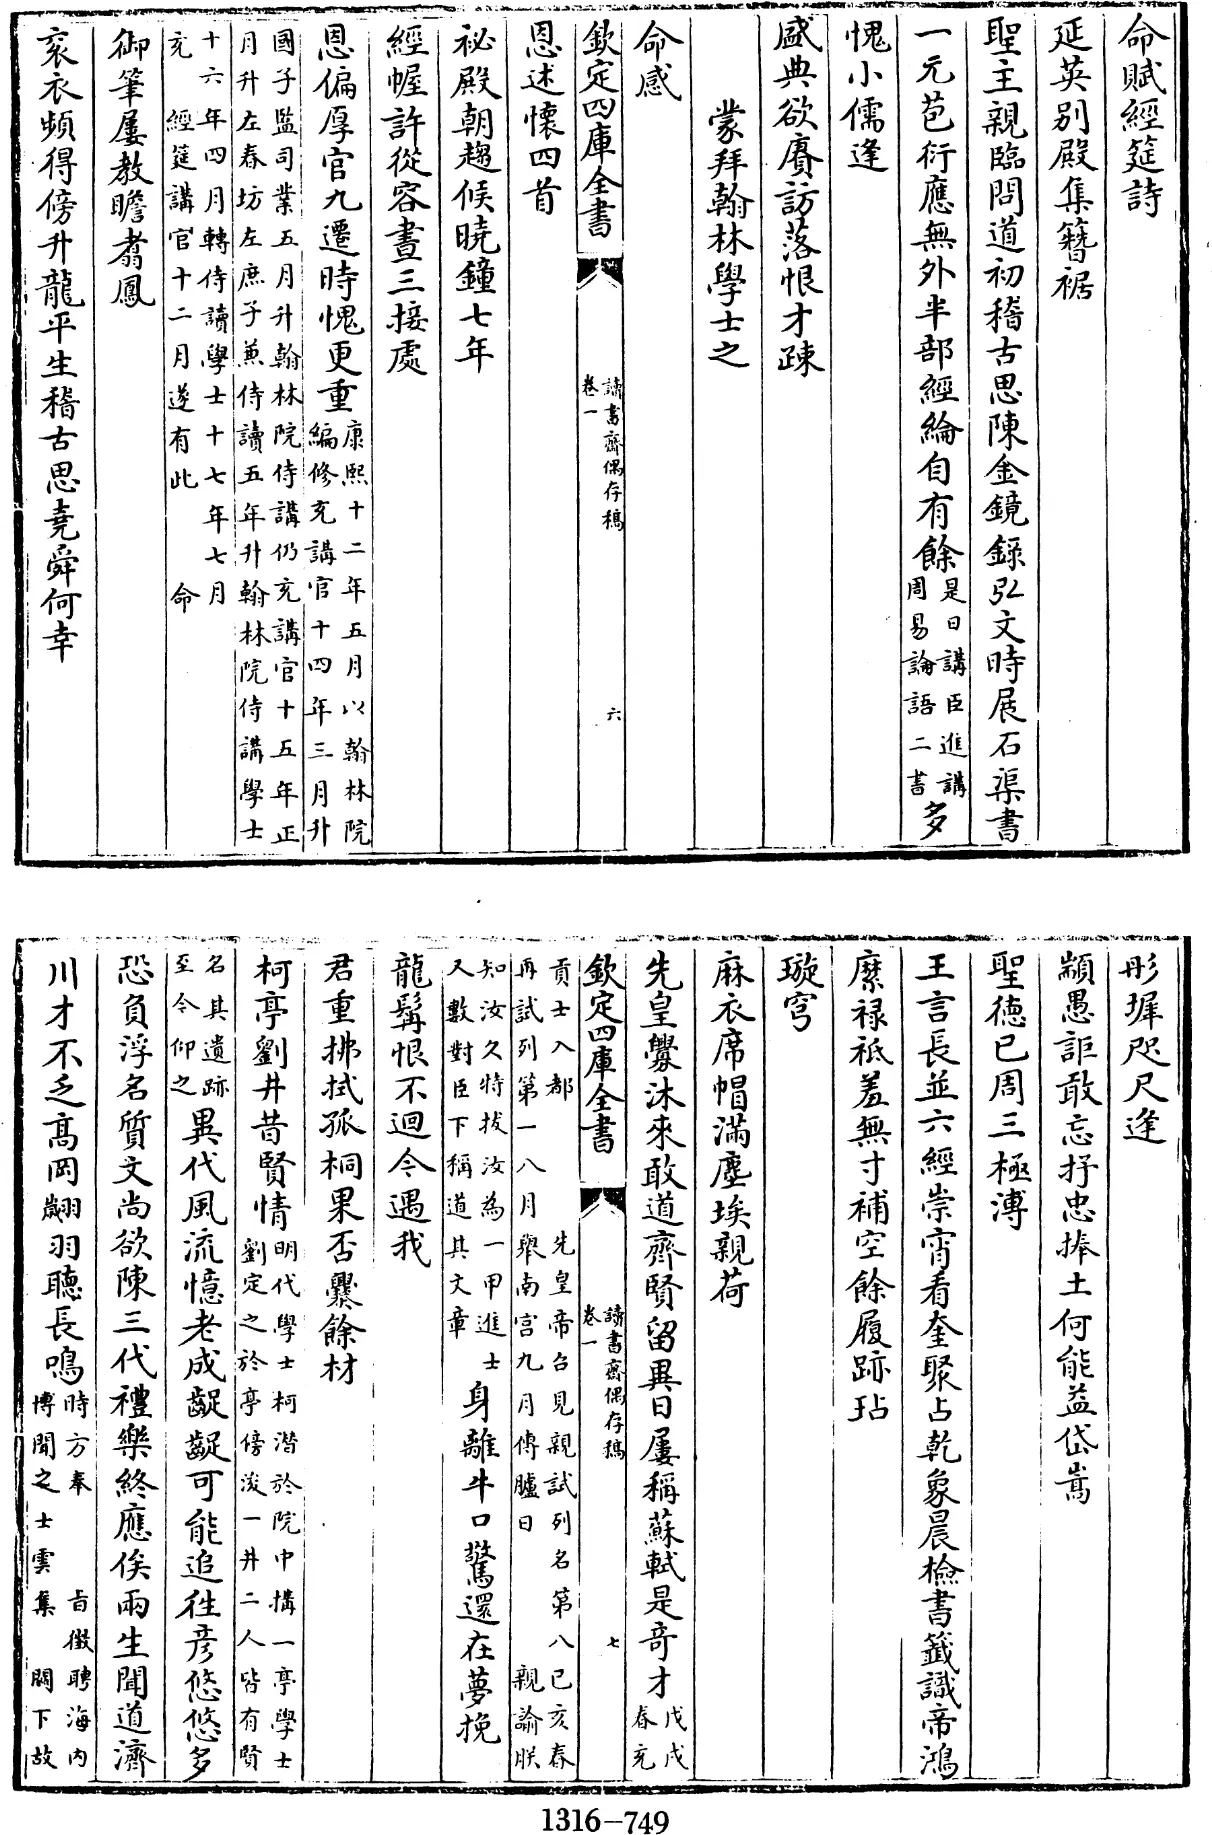 命賦經筵詩
延英别殿集簪裾
聖主親臨問道初稽古思陳金鏡錄弘文時展石渠書
一元苞衍應無外半部經綸自有餘是日講臣進講周易論語二書多
愧小儒逢
盛典欲賡訪落恨才疎
蒙拜翰林學士之
命感
欽定四庫全書
讀書齋偶存稿
卷一
六
恩述懷四首
祕殿朝趨候曉鐘七年
經幄許從容晝三接處
恩偏厚官九遷時愧更重康熙十二年五月以翰林院編修充講官十四年三月升
國子監司業五月升翰林院侍講仍充講官十五年正月升左春坊左庶子兼侍讀五年升翰林院侍講學士
十六年四月轉侍讀學士十七年七月充經筵講官十二月遂有此命
御筆屢教瞻翥鳳
衮衣頻得傍升龍平生稽古思堯舜何幸
彤墀咫尺逢
顓愚詎敢忘抒忠捧土何能益岱嵩
聖德已周三極溥
王言長並六經崇宵看奎聚占乾象晨檢書籤識帝鴻
縻禄祗羞無寸補空餘履跡玷
璇穹
麻衣席帽滿塵埃親荷
先皇釁沐來敢道齊賢留異日屢稱蘇軾是奇才戊戌春充
欽定四庫全書
讀書齋偶存稿
卷一
七
貢士入都先皇帝召見親試列名第八已亥春再試列第一八月舉南宫九月傳臚日親諭朕
知汝久特拔汝為一甲進士又數對臣下稱道其文章身離牛口驚還在夢挽
龍髯恨不迴今遇我
君重拂拭孤桐果否爨餘材
柯亭劉井昔賢情明代學士柯潛於院中搆一亭學士劉定之於亭傍浚一井二人皆有賢
名其遺跡至今仰之異代風流憶老成齪齪可能追往彦悠悠多
恐負浮名質文尚欲陳三代禮樂終應俟兩生聞道濟
川才不乏高岡翽羽聽長鳴時方奉旨徵聘海内博聞之士雲集闕下故
1316-749